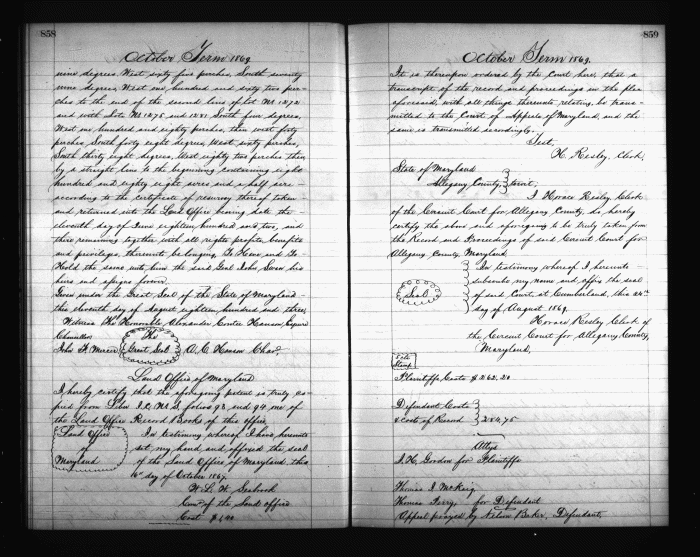 858
October Term 1869.
nine degrees, West sixty five perches, South seventy
nine degrees, West one hundred and sixty two per-
ches to the end of the second line of lot No 1272
and with Lots No 1275 and 1281 South four degrees,
West one hundred and eighty perches, then west forty
perches, South forty eight degrees, West sixty perches,
South thirty eight degrees, West eighty two perches then
by a straight line to the beginning containing eight
hundred and eighty eight acres and a half acre
according to the certificate of resurvey thereof taken
and returned into the Land Office bearing date the
eleventh day of June eighteen hundred and two, and
there remaining together with all rights profits benefits
and privileges, thereunto belonging, To Have and To
Hold the same unto him the said John Swan his
heirs and assigns forever.
Given under the Great Seal of the State of Maryland
this eleventh day of August eighteen, hundred and three,
Witness The Honorable Alexander Contee Hanson, Esquire
Chancellor
John F. Mercer
The Great Seal
A. C. Hanson Chan.
Land Office of Maryland
I hereby certify that the aforegoing patent is truly co-
pied from Liber I. C. folios 93 and 94 one of
the Land Office Record Books of this office.
Land Office
of
Maryland
In testimony whereof I have hereunto
set my hand and affixed the seal
of the Land Office of Maryland, this
16th day of October 1867.
W. L. W. Seabrook
Com. of the Land office
Cost $1.00
859
October Term 1869.
It is thereupon ordered by the Court here, that a
transcript of the record and proceedings in the plea
aforesaid, with all things thereunto relating, be trans-
mitted to the Court of Appeals of Maryland, and the
same is transmitted accordingly.
Test,
H. Resley, Clerk,
State of Maryland
Allegany County, to wit,
I Horace Resley Clerk
of the Circuit Court for Allegany County, do hereby
certify the above and aforegoing to be truly taken from
the Record and Proceedings of said Circuit Court for
Allegany County Maryland
Seal
In testimony whereof I hereunto
subscribe my name and affix the seal
of said Court at Cumberland, this 24th
day of August 1869.
Horace Resley Clerk of
the Circuit Court for Allegany County,
Maryland,
Stamp
Plaintiffs Costs $262.20
Defendant Costs
& costs of Record
284.75
Attys
J. H. Gordon for Plaintiffs
Thomas J. McKaig
Thomas Perry, for Defendant
Appeal prayed by Nelson Beker, Defendant,